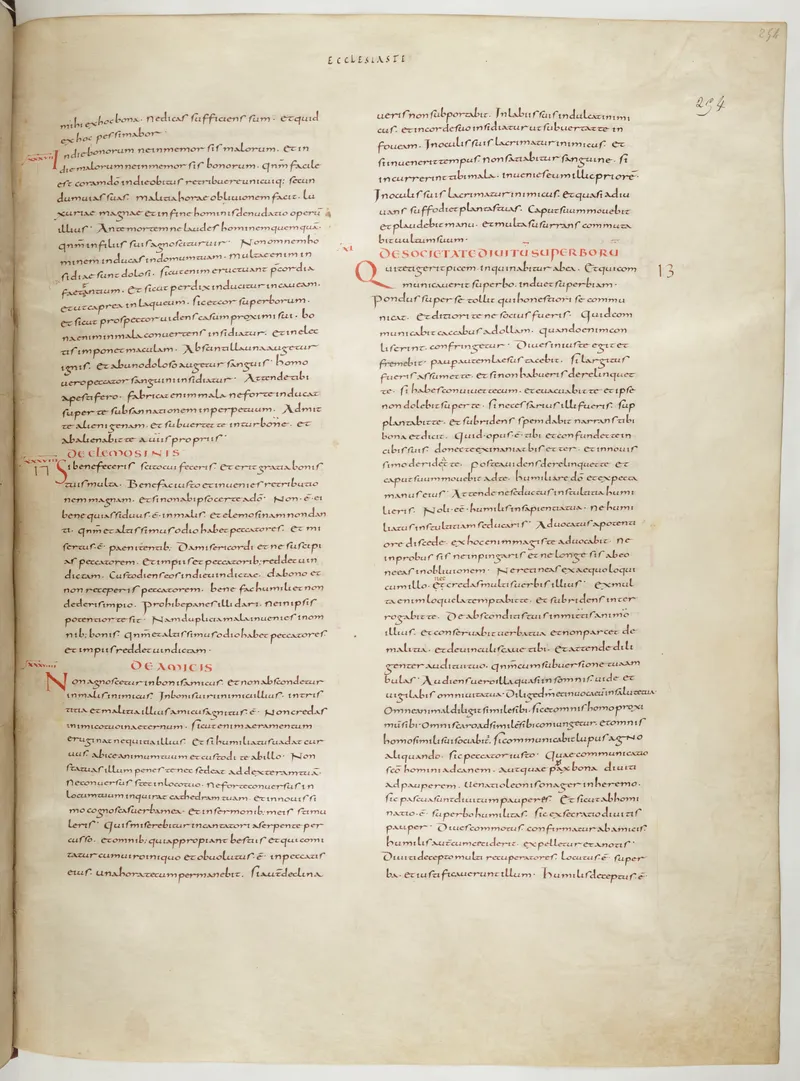 254
ECCLESIASTI
254
mihi ex hoc bona. ne dicas sufficiens sum. et quid
ex hoc pessimabor
In die bonorum ne inmemor sis malorum. et in
die malorum ne inmemor sis bonorum. qnm̄ facile
est coram dō in die obitus retribuere unicuiq; secun
dum uias suas. malitia horae obliuionem facit. lu
xuriae magnae et in fine hominis denudatio operū
illius. Ante mortem ne laudes hominem quemquā.
qnm̄ in filiis suis agnoscitur uir. Non omnem ho
minem inducas in domum tuam. multae enim in
sidiae sunt dolosi. sicut enim eructuant p̄cordia
faetantium. et sicut perdix inducitur in caueam.
et ut caprea in laqueum. sic et cor superborum.
et sicut prospector uidens casum proximi sui. bo
na enim in mala conuertens insidiatur. et in elec
tis imponet maculam. Ab scintilla una augetur
ignis. et ab uno doloso augetur sanguis. homo
uero peccator sanguini insidiatur. Attende tibi
a pestifero. fabricat enim mala ne forte inducat
super te subsannationem in perpetuum. Admit
te alienigenam. et subuertet te in turbōne. et
abalienabit te a uiis propriis.
DE ELEMOSINIS
12 Si benefeceris scito cui feceris et erit gratia bonis
tuis multa. Benefac iusto et inuenies retributio
nem magnam. et si non ab ipso certe a dō. Non .ē. ei
bene qui assiduus .ē. in malis. et elemosinam non dan
ti. qnm̄ et altissimus odio habet peccatores. et mi
sertus .ē. paenitentib; Da misericordi et ne suscipi
as peccatorem. et impiis et peccatorib; reddet uin
dictam. Custodiens eos in die uindictae. da bono et
non receperis peccatorem. bene fac humili et non
dederis impio. Prohibe panes illi dari. ne in ipsis
potentior te sit. Nam duplicia mala inuenies in om
nib; bonis. qnm̄ et altissimus odio habet peccatores
et impiis reddet uindictam.
DE AMICIS
Non agnoscetur in bonis amicus. et non abscondetur
in malis inimicus. In bonis uiri inimici illius. in tris
titia et malitia illius amicus agnitus .ē. Non credas
inimico tuo in aeternum. sicut enim aeramentum
eruginat nequitia illius. Et si humiliatus uadat cur
uus. abice animum tuum et custodi te ab illo. Non
statuas illum penes te nec sedeat ad dexteram tuā.
ne conuersus stet in loco tuo. ne forte conuersus in
locum tuum inquirat cathedram tuam. et in nouissi
mo cognoscas uerba mea. et in sermonib; meis stimu
leris. Quis miserebitur incantatori a serpente per
cusso. et omnib; qui appropiant bestiis et qui comi
tatur cum uiro iniquo et obuolutus .ē. in peccatis
eius. una hora tecum permanebit. si aut̄ declina
ueris non subportabit. In labiis suis indulcat inimi
cus. et in corde suo insidiatur ut subuertat te in
foueam. In oculis suis lacrimatur inimicus. et
si inuenerit tempus non satiabitur sanguine. si
incurrerint tibi mala. inuenies eum illic priorē.
In oculis suis lacrimatur inimicus. et quasi adiu
uans suffodiet plantas tuas. Caput suum mouebit
et plaudebit manu. et multa susurrans commuta
bit uultum suum.
DE SOCIETATE DIUITŪ SUPERBORŪ
13 Qui tetigerit picem inquinabitur ab ea. Et qui com
municauerit superbo. induet superbiam.
Pondus super se tollit qui honestiori se commu
nicat. et ditiori te ne socius fueris. Quid com
municabit caccabus ad ollam. quando enim con
liserint. confringetur. Diues iniuste egit et
fremebit. paup̄ autem laesus tacebit. Si largitus
fueris assumet te. et si non habueris derelinquet
te. Si habes conuiuet tecum. et euacuabit te et ipse
non dolebit super te. si necessarius illi fueris. sup
plantabit te. et subridens spem dabit narrans tibi
bona et dicit. Quid opus .ē. tibi et confundet te in
cibis suis. donec te exinaniat bis et ter. et in nouis
simo deridet te. Postea uidens derelinquet te et
caput suum mouebit ad te. humiliare dō et expecta
manus eius. Attende ne seductus in stultitia humi
lieris. Noli .ēē. humilis in sapientia tua. ne humi
liatus in stultitiam seducaris. Aduocatus a potenti
ore discede. ex hoc enim magis te aduocabit. ne
inprobus sis ne inpingaris et ne longe sis ab eo
ne eas in obliuionem. Ne retineas ex aequo loqui
cum illo. nec credas multis uerbis illius. ex mul
ta enim loquela temptabit te. et subridens inter
rogabit te. De absconditis tuis inmitis animo
illius. et conseruabit uerba tua et non parcet de
malitia. et de uinculis. caue tibi. et attende dili
genter auditui tuo. qnm̄ cum subuersione tua am
bulas. Audiens uero illa quasi in somnis uide et
uigilabis. omni uita tua. Dilige dm̄ et inuoca eū in salute tua.
Omne animal diligit similē sibi. sic et omnis homo proxi
mū sibi. Omnis caro ad similē sibi comungetur. et omnis
homo simili sui sociabit̄. Si communicabit lupus agno
aliquando. sic peccator iusto. Quae communicatio
sc̄o homini ad canem. aut quae pax bona diuiti
ad pauperem. Uenatio leonis onager in heremo.
sic pascua sunt diuitum pauperes. Et sicut abhomi
natio .ē. superbo humilitas. sic execratio diuitis
pauper. Diues commotus confirmatur ab amicis.
humilis aut̄ cum ceciderit. expelletur et a notis.
Diuiti decepto multi recuperatores. Locutus .ē. super
ba. et iustificauerunt illum. humilis deceptus .ē.